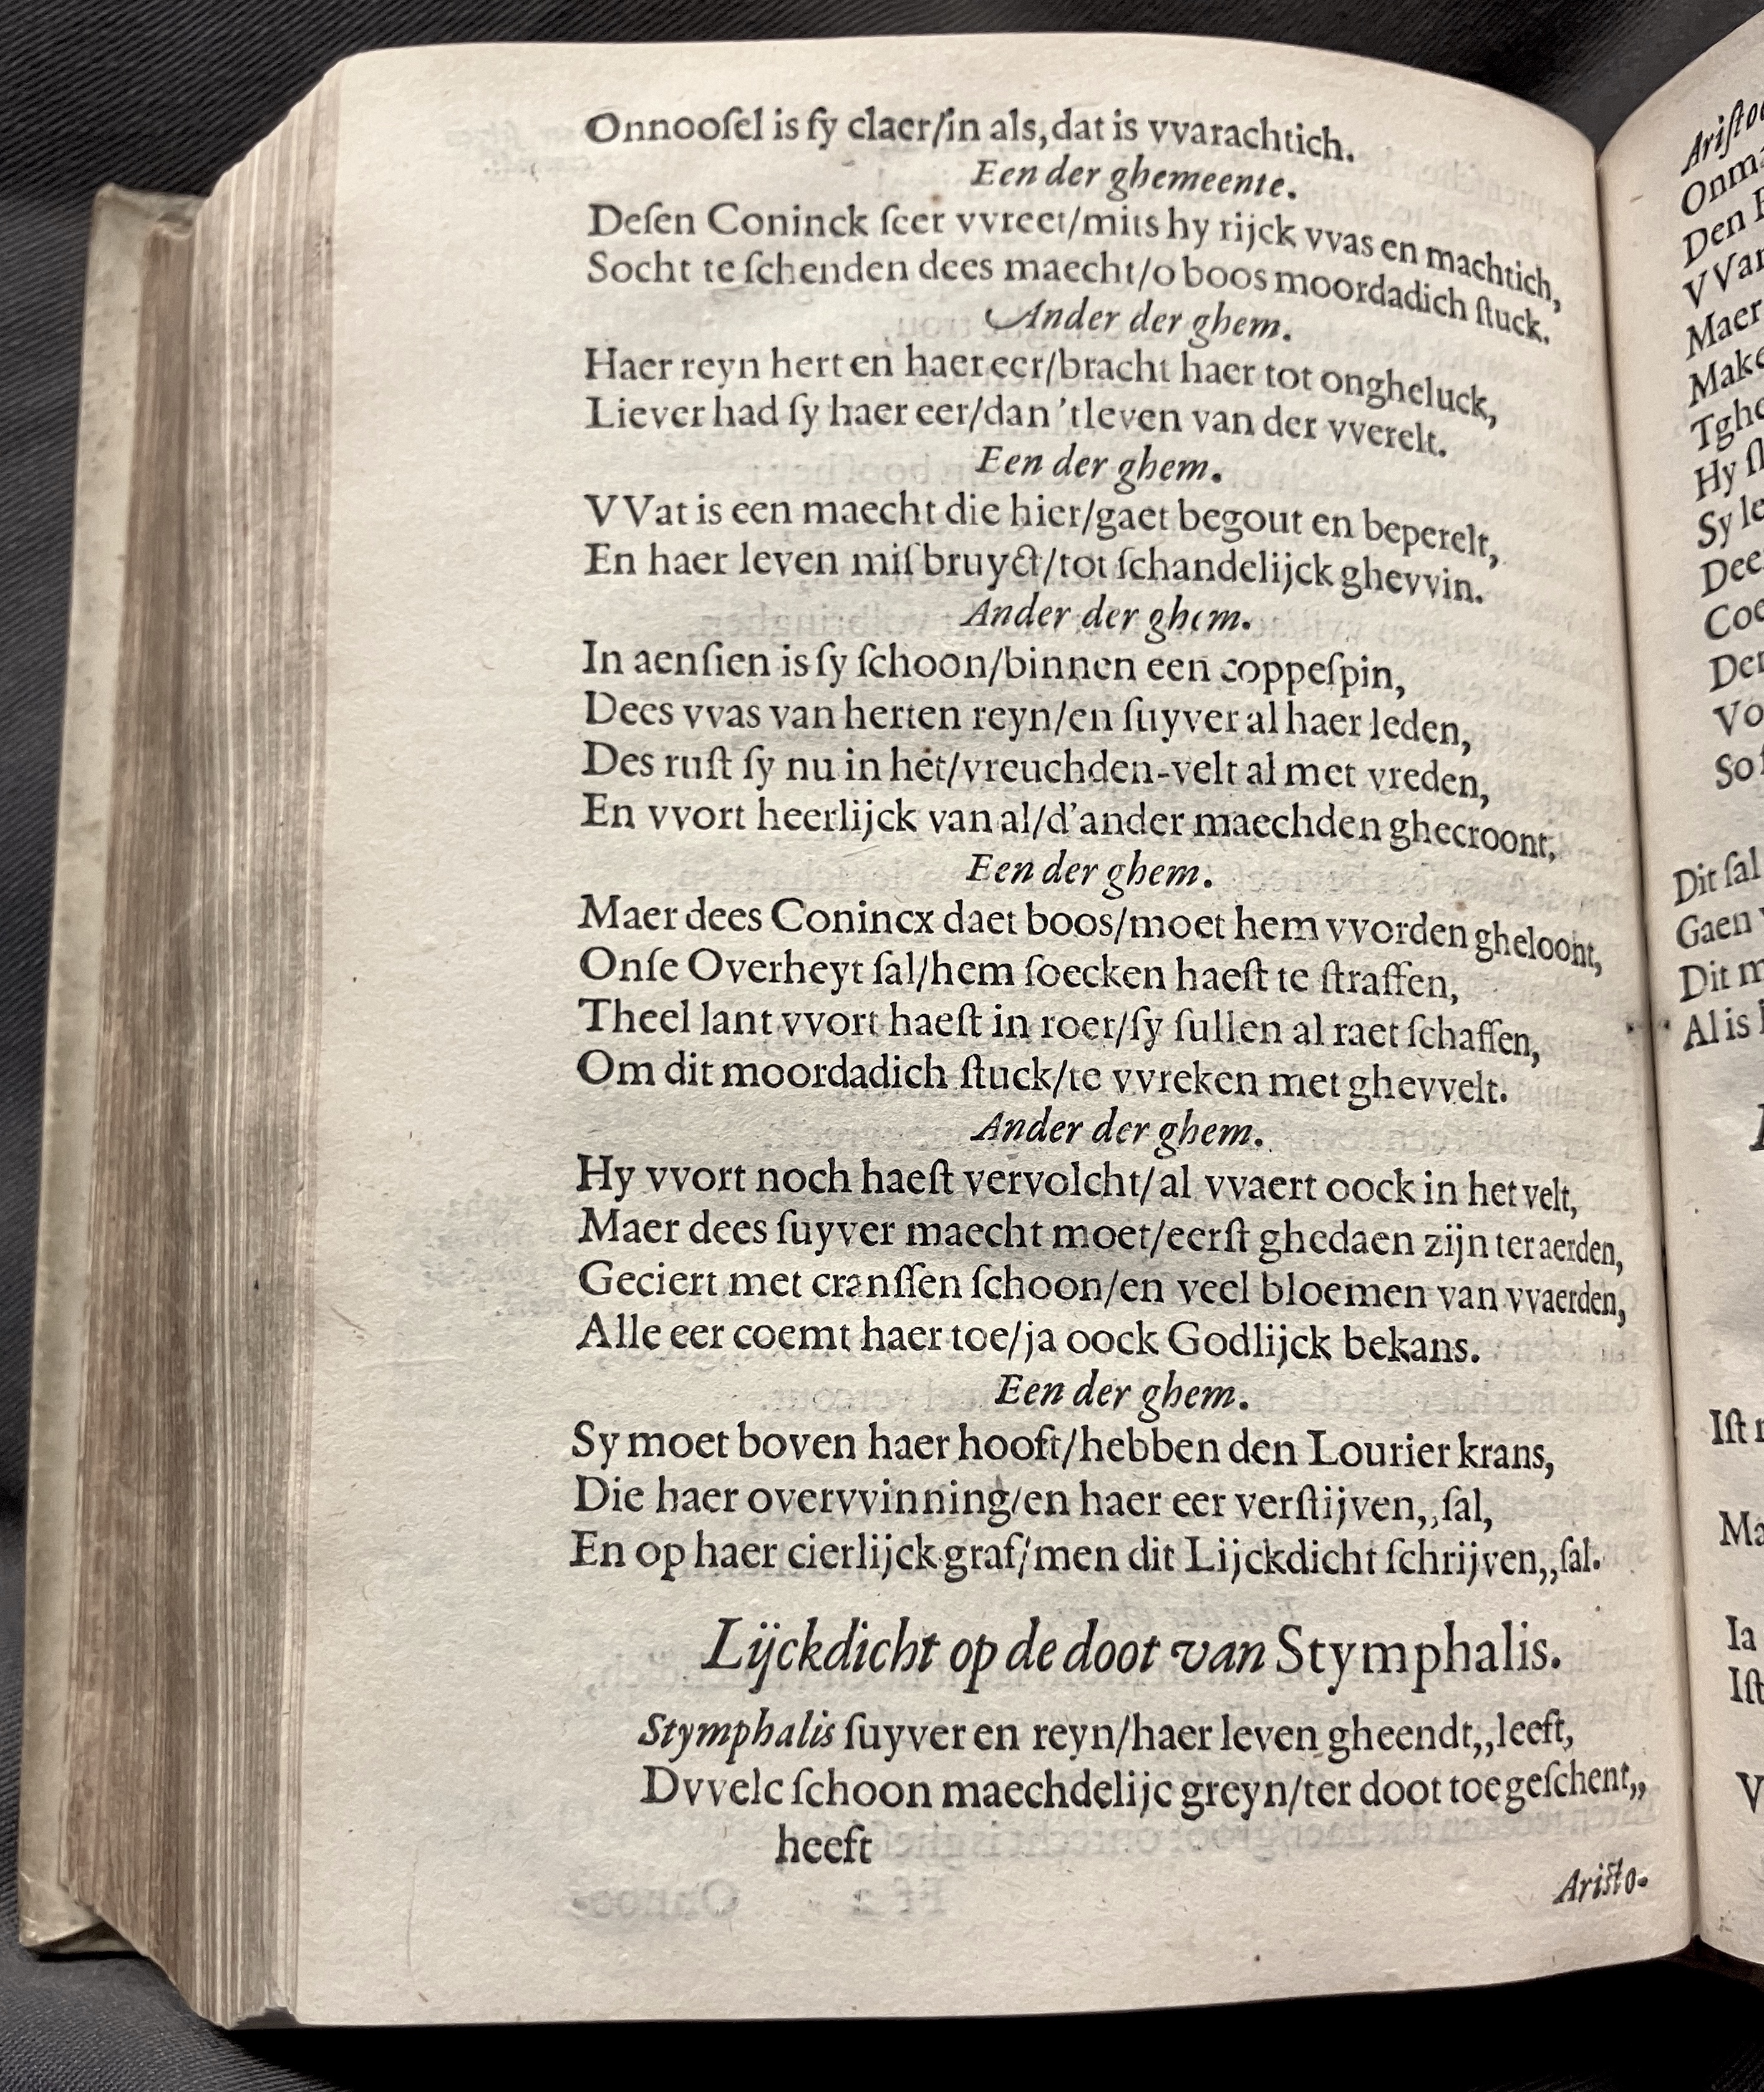 Onnooſel is ſy claer/in als, dat is vvarachtich.
Een der ghemeente.
Deſen Coninck ſeer vvreet/mits hy rijck vvas en machtich,
Socht te ſchenden dees maecht/o boos moordadich ſtuck.
Ander der ghem.
Haer reyn hert en haer eer/bracht haer tot ongheluck,
Liever had ſy haer eer/dan 'tleven van der vverelt.
Een der ghem.
VVat is een maecht die hier/gaet begout en beperelt,
En haer leven miſbruyct/tot ſchandelijck ghevvin.
Ander der ghem.
In aenſien is ſy ſchoon/binnen een coppeſpin,
Dees vvas van herten reyn/en ſuyver al haer leden,
Des ruſt ſy nu in het/vreuchden-velt al met vreden,
En vvort heerlijck van al/d'ander maechden ghecroont,
Een der ghem.
Maer dees Conincx daet boos/moet hem vvorden gheloont,
Onſe Overheyt ſal/hem ſoecken haeſt te ſtraffen,
Theel lant vvort haeſt in roer/ſy ſullen al raet ſchaffen,
Om dit moordadich ſtuck/te vvreken met ghevvelt.
Ander der ghem.
Hy vvort noch haeſt vervolcht/al vvaert oock in het velt,
Maer dees ſuyver maecht moet/eerſt ghedaen zijn ter aerden,
Geciert met cranſſen ſchoon/en veel bloemen van vvaerden,
Alle eer coemt haer toe/ja oock Godlijck bekans.
Een der ghem.
Sy moet boven haer hooft/hebben den Lourier krans,
Die haer overvvinning/en haer eer verſtijven,,ſal,
En op haer cierlijck graf/men dit Lijckdicht ſchrijven,,ſal.
Lijckdicht op de doot van Stymphalis.
Stymphalis ſuyver en reyn/haer leven gheendt,,leeft,
Dvvelc ſchoon maechdelijc greyn/ter doot toegeſchent,,
heeft
Ariſto-
Onma
Den
VVar
Maer
Make
Tghe
Hy
Sy le
Dee
Coe
Der
Vo
So
Dit ſal
Gaen
Dit m
Al is
Iſt
Ma
Ia
Iſt
V